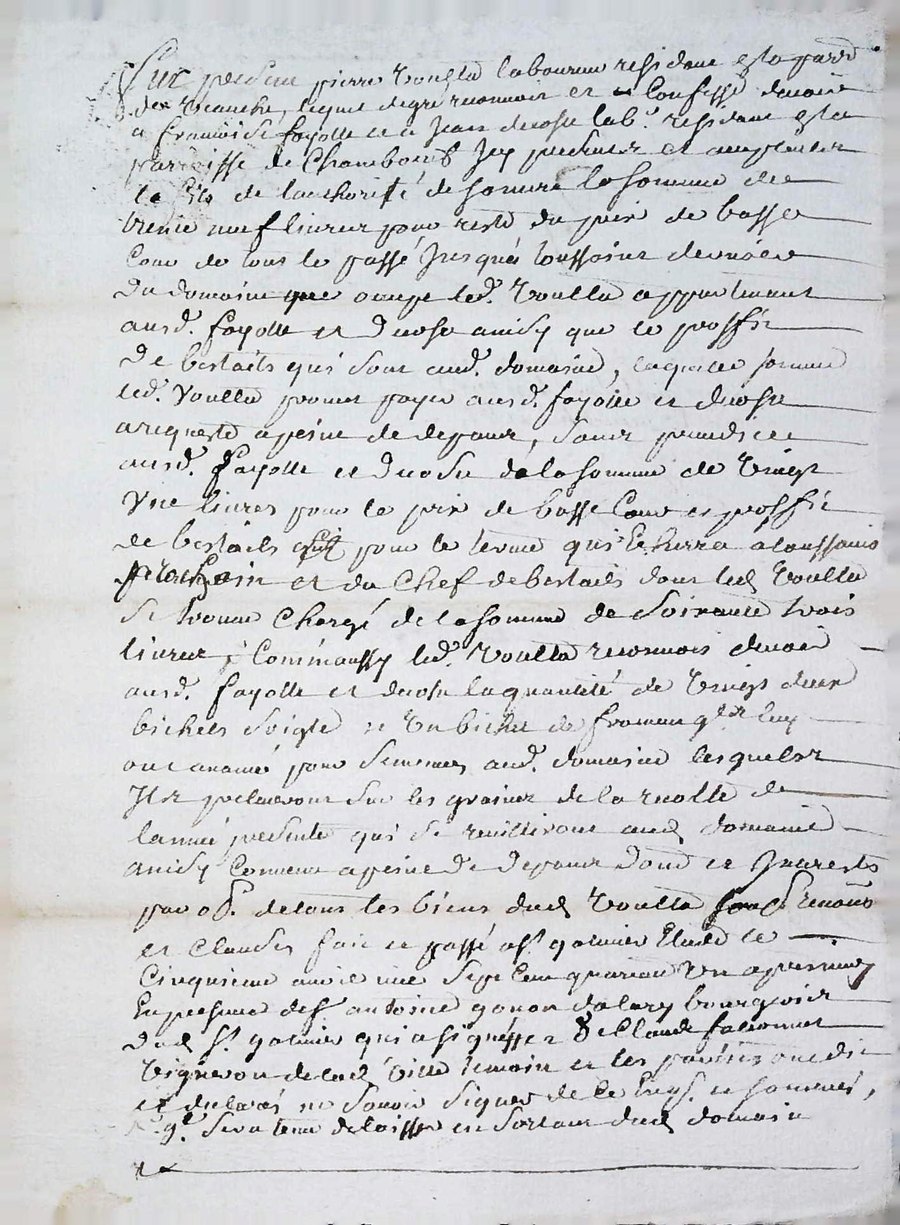 fut present pierre Voulta laboureur residant en la parr.
des Branches, lequel degré reconnoit et a Confessé devoir
a francoise fayolle et a Jean ducoste lab.r residant en la
parroisse de Chambœuf Icy presents et acceptants
le fils de lauthorité de sa mere la somme de
trente neuf livres pour reste du prix de basse
Cour de tout le passé Jusqu'à toussaint derniere
du domaine que occupe led. Voulta appartenant
ausd. fayolle et ducoste ainsy que le proffit
de bestails qui sont aud. domaine, laquelle somme
led. Voulta promet payer ausd. fayolle et ducoste
a requeste a peine de depans, sans prejudice
ausd. fayolle et ducoste de la somme de vingt
Une livres pour le prix de basse Cour et proffit
de bestails pour le terme qui Echerra a toussaints
prochain et du Chef de bestails dont led. Voulta
se trouve Chargé de la somme de Soixante trois
livres, Comm'aussy led. Voulta reconnois devoir
ausd. fayolle et ducoste la quantité de vingt deux
bichets seigle et Un bichet de froment q.
ont avancé pour semences aud. domaine lesquels
Ils preleveront sur les graines de la recolte de
lannée presente qui se cuillirons aud. domaine
ainsy Convenu a peine de depans et Interests
par ob. de tous les biens dud. Voulta
et Clauses fait et passé a St. galmier Etude le
Cinquieme avril mil Sept Cent quarante Un apres midy
En presence de s.r antoine bourgeois
dud. St. galmier qui a signé et de Claude
Vigneron de lad. Ville temoin et les parties ont dit
et declarés ne scavoir signer de ce Enq. et sommés,
sera tenu de laisser en sortant dud. domaine